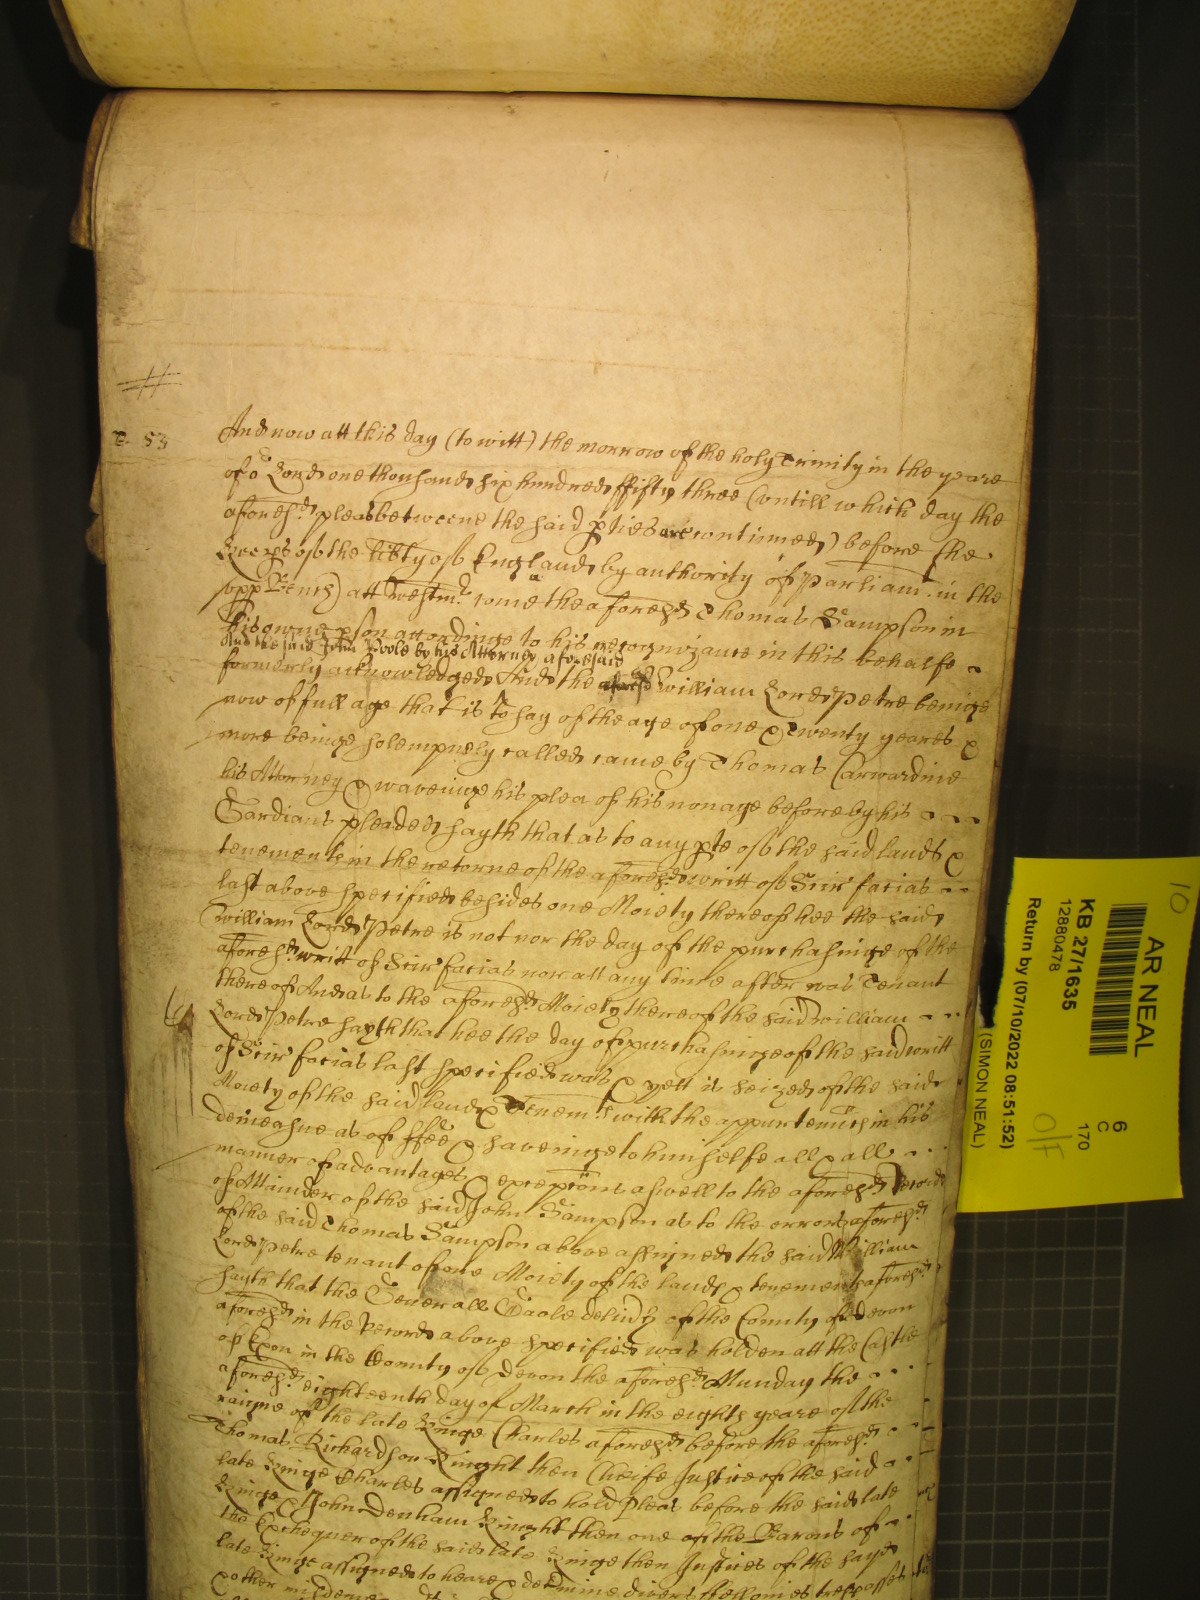 T. 53
And now att this day (to witt) the morrow of the holy Trinity in the yeare
of or Lord one thousand six hundred ffifty three (vntill which day the
aforesd. pleas betweene the said pties are continued) before the
Keeps of the libty of England by authority of Parliamt. in the
vpp Bench) att Westmr. come the aforesd Thomas Sampson in
his owne pson accordinge to his recognizance in this behalfe
And the said John Poole by his Attorney aforesaid
formerly acknowledged And the aforesd William Lord Petre beinge
now of full age that is to say of the age of one & twenty yeares &
more beinge solempnely called came by Thomas Carwardine
his Attorney & waveinge his plea of his nonage before by his
Gardians pleaded sayth that as to any pte of the said lands &
tenements in the retorne of the aforesd. writt of Scir' facias
last above specified besides one Moiety thereof hee the said
William Lord Petre is not nor the day of the purchasinge of the
aforesd. writt of Scir' facias nor att any time after was Tenant
thereof And as to the aforesd. Moiety thereof the said William
Lord Petre sayth that hee the day of purchasinge of the said writt
of Scir' facias last specified was & yett is seized of the said
Moiety of the said lands & Tenemts with the appurtenncs in his
demeasne as of ffee & saveinge to himselfe all & all
manner of advantages & excepcons aswell to the aforesd Record
of Attainder of the said John Sampson as to the errors aforesd.
of the said Thomas Sampson above assigned the said William
Lord Petre tenant of one Moiety of the lands & tenements aforesd
sayth that the Generall Gaole delivy of the County of Devon
aforesd in the Record above specified was holden att the Castle
of Exon in the County of Devon the aforesd. Munday the
aforesd. eighteenth day of March in the eighth yeare of the
raigne of the late Kinge Charles aforesd before the aforesd.
Thomas Richardson Knight then Cheife Justice of the said
late Kinge Charles assigned to hold Pleas before the said late
Kinge & John Denham Knight then one of the Barons of
the Exchequer of the said late Kinge then Justices of the sayd
late Kinge assigned to heare & determine divers ffellonies trespasses
& other
10
AR NEAL
KB 27/1635
12880478
Return by (07/10/2022 08:51:52)
(SIMON NEAL)
6
C
170
O/F